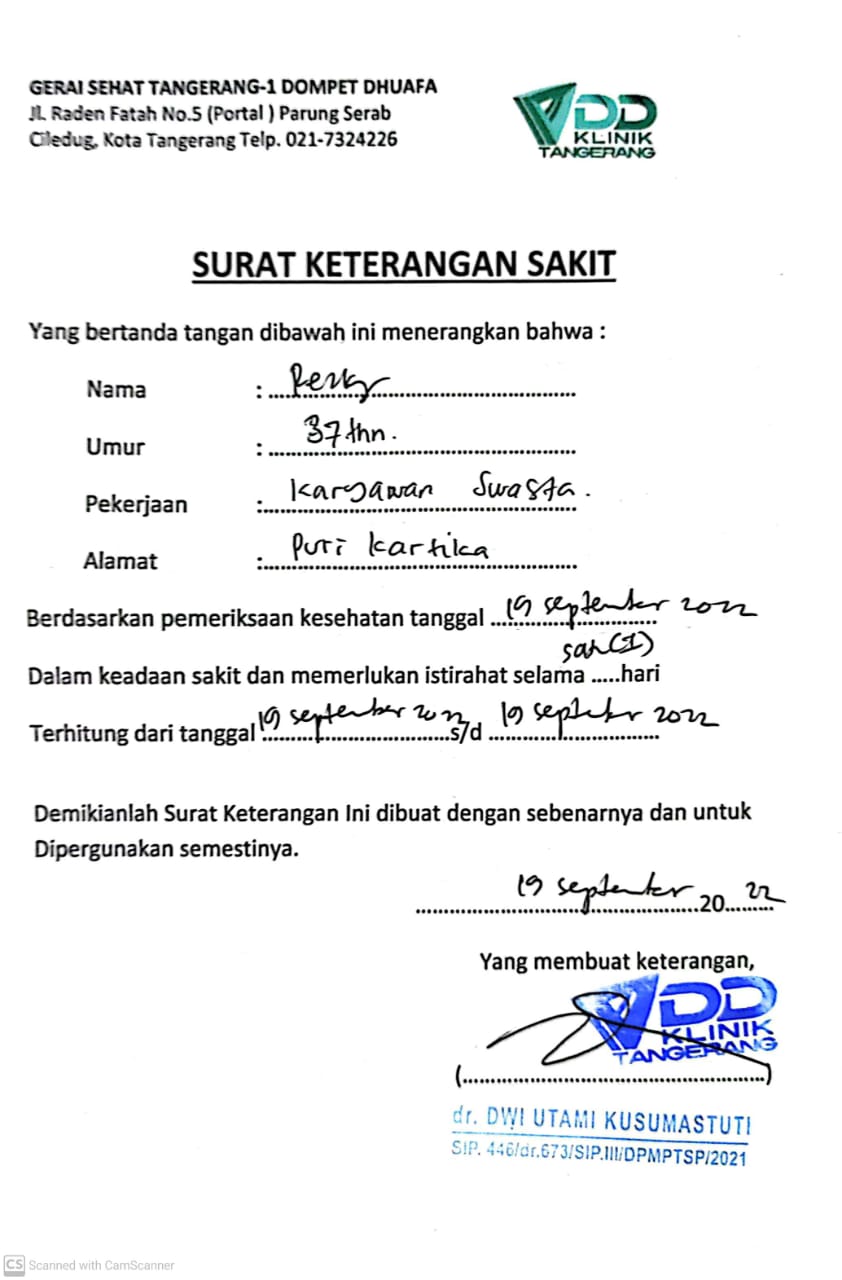 GERAI SEHAT TANGERANG-1 DOMPET DHUAFA
Jl. Raden Fatah No.5 (Portal ) Parung Serab
Ciledug, Kota Tangerang Telp. 021-7324226
DD
KLINIK
TANGERANG
SURAT KETERANGAN SAKIT
Yang bertanda tangan dibawah ini menerangkan bahwa :
Nama :
Umur : 37 thn.
Pekerjaan : Karyawan Swasta.
Alamat : Puri Kartika
Berdasarkan pemeriksaan kesehatan tanggal 19 september 2022
Dalam keadaan sakit dan memerlukan istirahat selama (1) hari
Terhitung dari tanggal 19 september 2022 s/d 19 september 2022
Demikianlah Surat Keterangan Ini dibuat dengan sebenarnya dan untuk
Dipergunakan semestinya.
19 september 20 22
Yang membuat keterangan,
DD
KLINIK
TANGERANG
(..........)
dr. DWI UTAMI KUSUMASTUTI
SIP. 446/dr.673/SIP.III/DPMPTSP/2021
CS Scanned with CamScanner